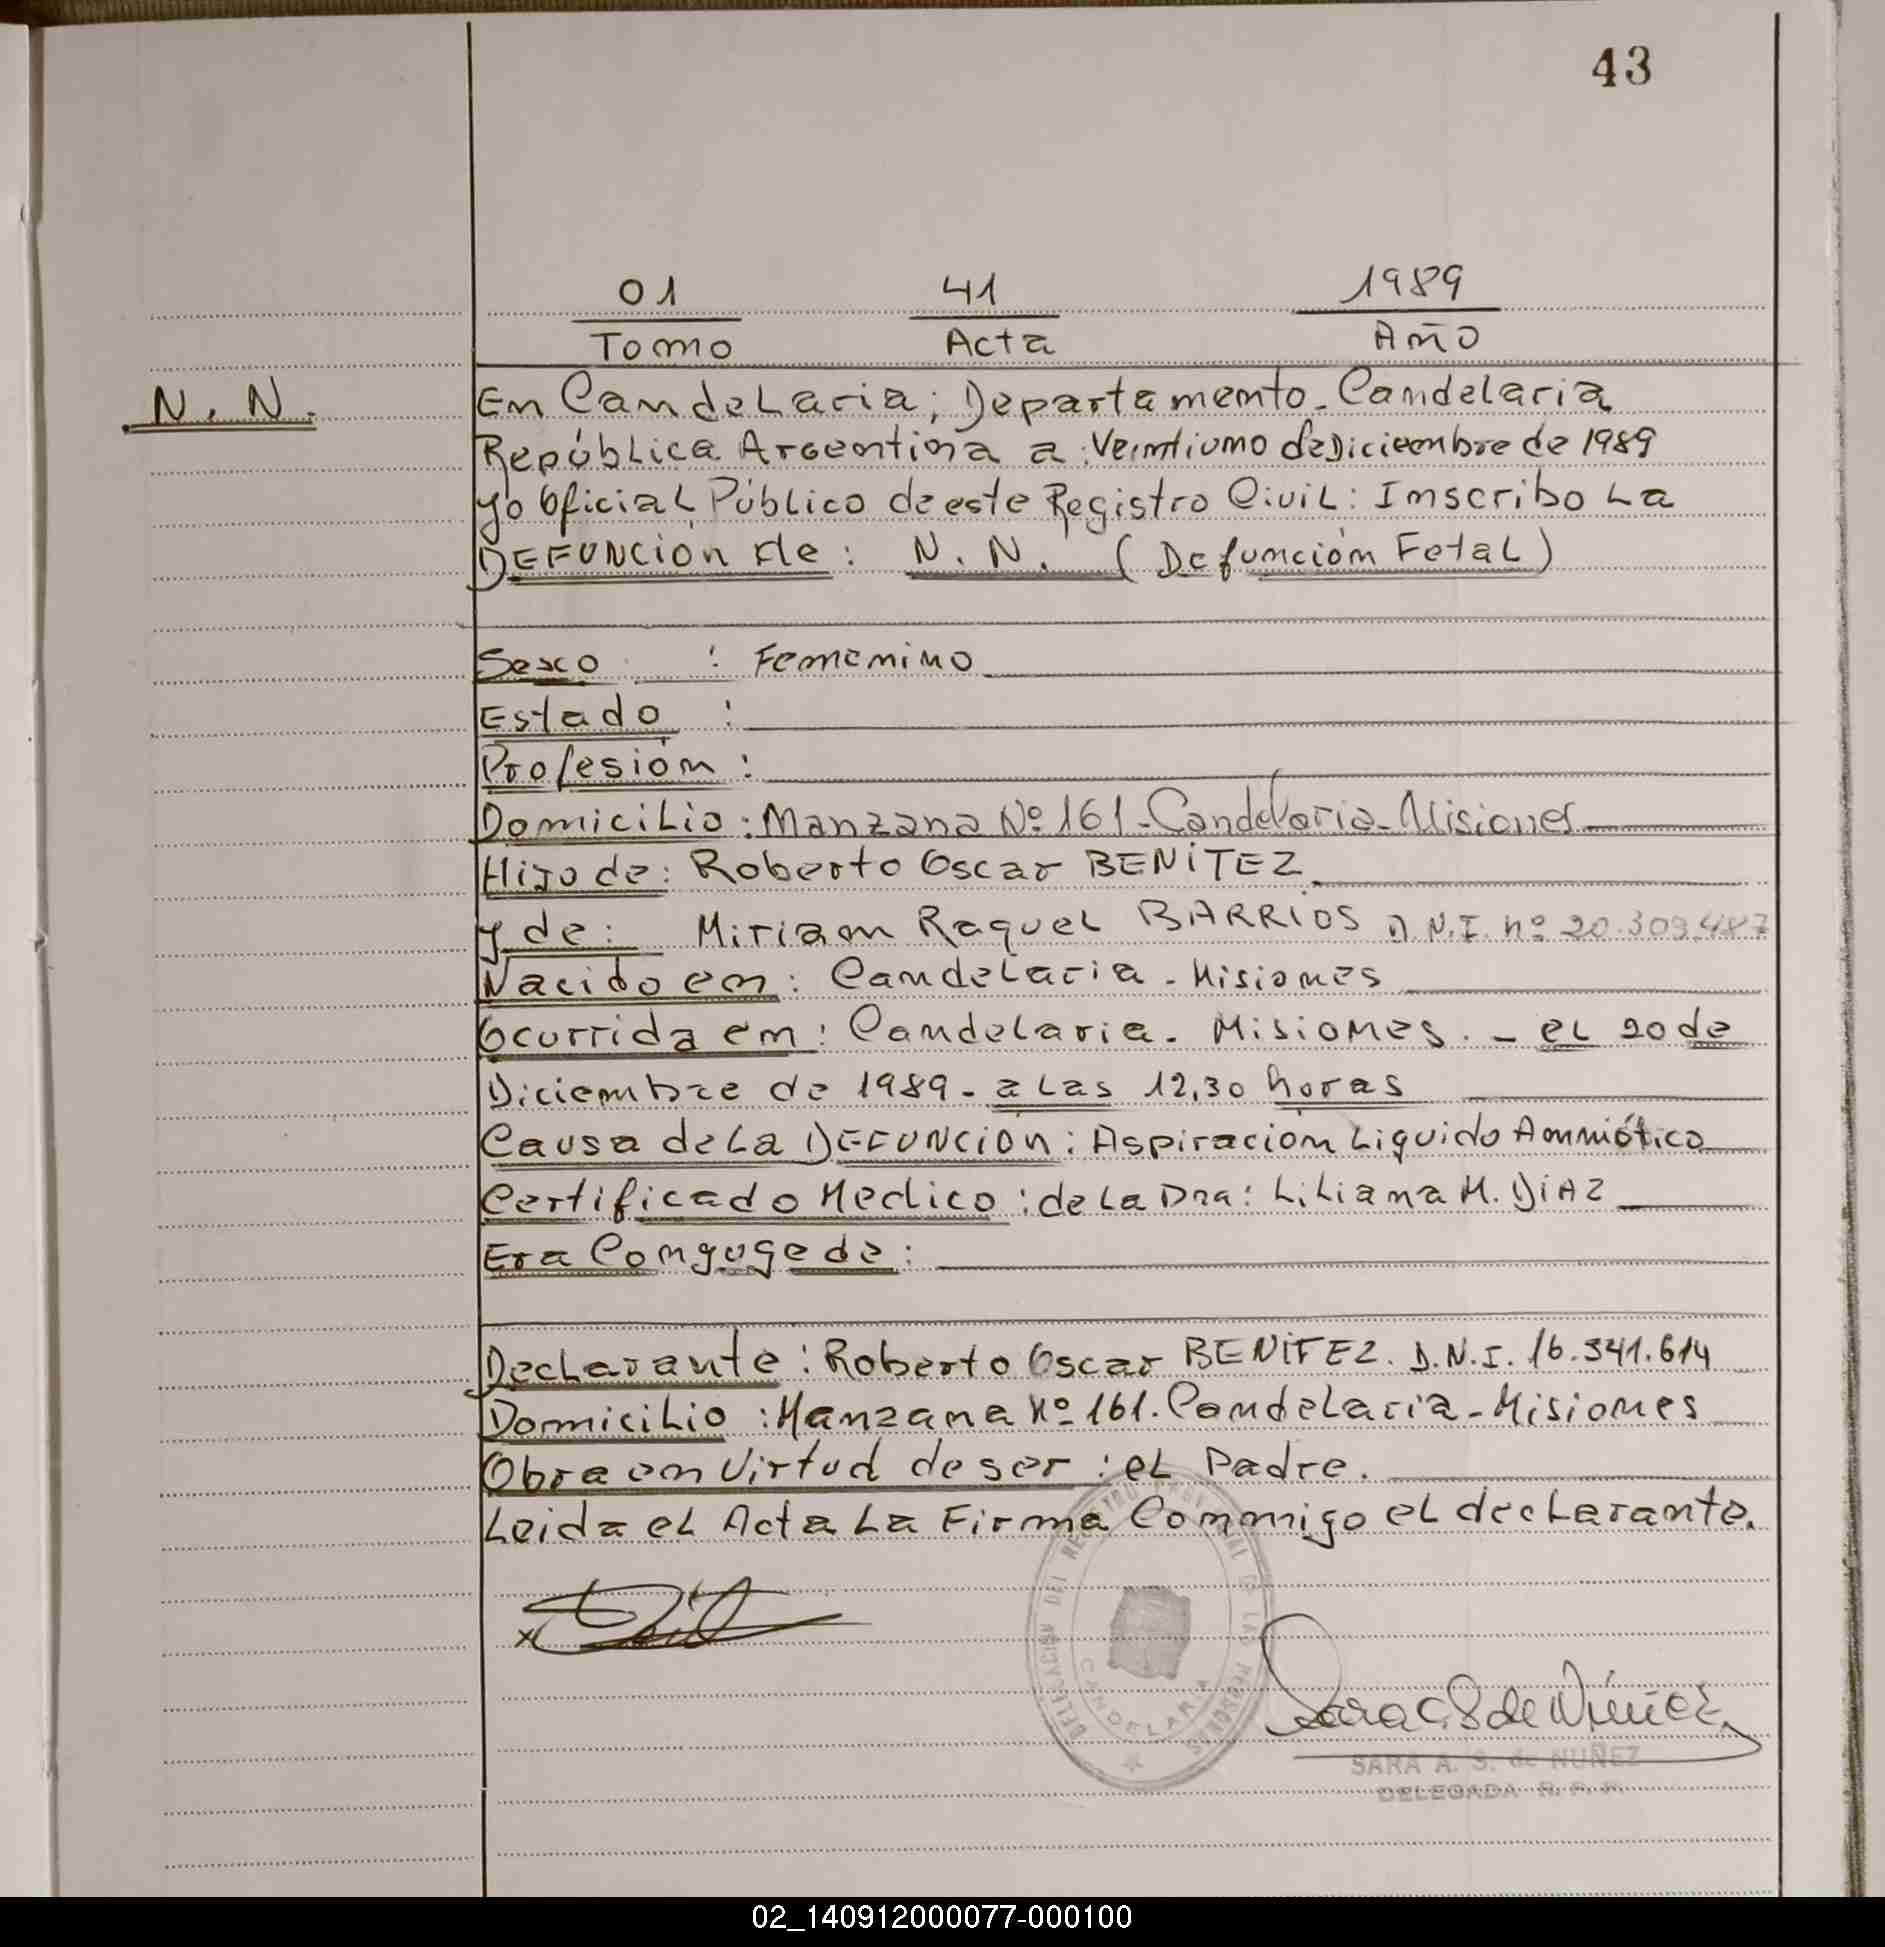 43
01 41 1989
Tomo Acta Año
N. N.
En Candelaria; Departamento Candelaria
República Argentina a: Veintiuno de Diciembre de 1989
yo Oficial Público de este Registro Civil: Inscribo La
DEFUNCIÓN de: N. N. (Defunción Fetal)
Sexo : Femenino
Estado :
Profesión :
Domicilio: Manzana Nº 161 - Candelaria - Misiones
Hijo de: Roberto Oscar BENÍTEZ
y de: Miriam Raquel BARRIOS D.N.I. nº 20.309.487
Nacido en: Candelaria - Misiones
Ocurrida en: Candelaria - Misiones. - el 20 de
Diciembre de 1989 - a las 12,30 horas
Causa de la DEFUNCIÓN: Aspiración Liquido Amniótico
Certificado Medico: de la Dra: Liliana M. DÍAZ
Era Conyuge de:
Declarante: Roberto Oscar BENÍTEZ. D.N.I. 16.341.614
Domicilio: Manzana Nº 161. Candelaria - Misiones
Obra en Virtud de ser: el Padre.
Leida el Acta La Firma Conmigo el declarante.
DELEGACIÓN DEL REGISTRO PROVINCIAL DE LAS PERSONAS
CANDELARIA
SARA A. S. de NUÑEZ
DELEGADA R. P. P.
02_140912000077-000100